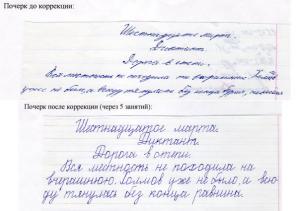 Почерк до коррекции:
Шестнадцатое марта.
Диктант.
Дорога в степи.
Вся местность не походила на вчерашнюю. Холмов
уже не было, а всюду тянулась без конца
Почерк после коррекции (через 5 занятий):
Шестнадцатое марта.
Диктант.
Дорога в степи.
Вся местность не походила на
вчерашнюю. Холмов уже не было, а всю-
ду тянулась без конца равнина.